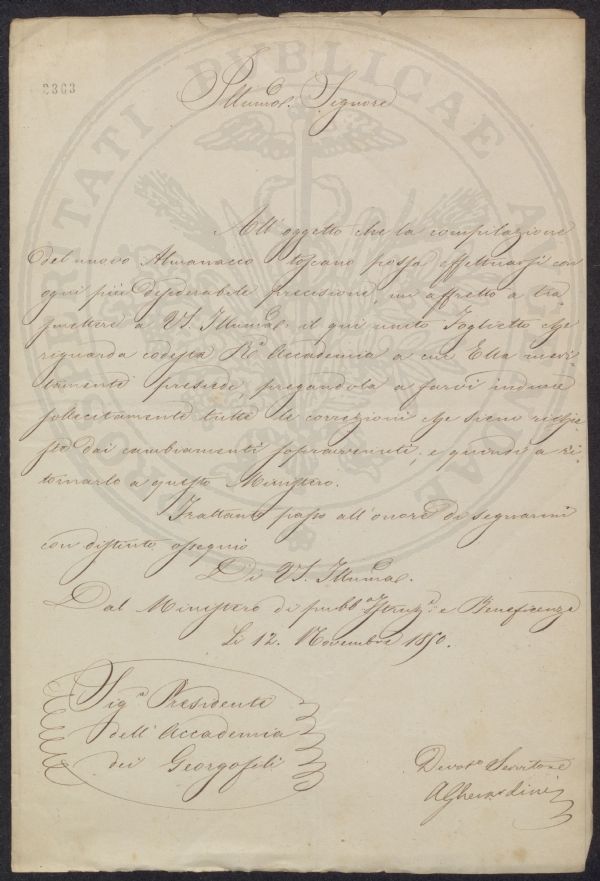 2363
Illumo. Signore
All' oggetto che la compilazione
del nuovo Almanacco toscano possa effettuarsi con
ogni più desiderabile precisione, mi affretto a tra,
smettere a VS. Illuma. il qui unito Foglietto che
riguarda codesta Re. Accademia a cui Ella meri,
tamente presiede, pregandola a farvi indurre
sollecitamente tutte le correzioni che sieno richie,
ste dai cambiamenti sopravvenuti, e quindi a ri,
tornarlo a questo Ministero.
Frattanto passo all'onore di segnarmi
con distinto ossequio
Di VS. Illuma.
Dal Ministero di pubba. Istruze. e Beneficenza
Li 12. Novembre 1850.
Sigr. Presidente
dell'Accademia
dei Georgofili
Devotmo Servitore
A Gherardini
PROSPERITATI PUBLICAE AUGENDAE